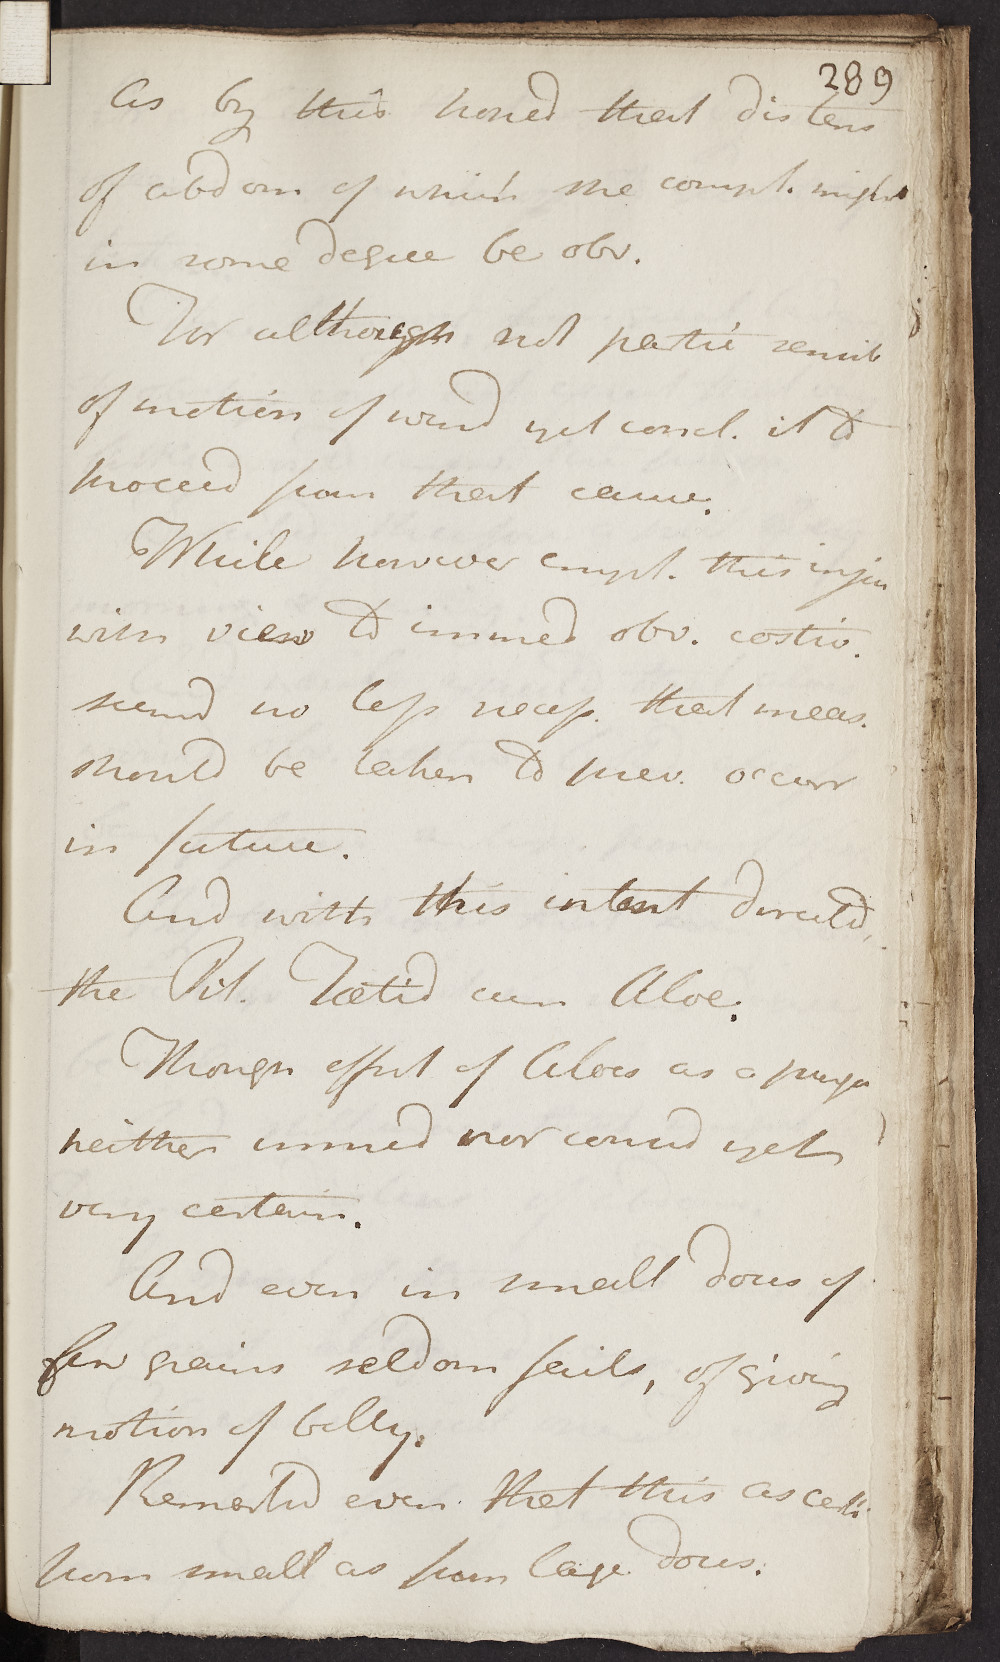 289
As by this hoped that distens
of abdom of which she compl. might
in some degree be obv.
For although not partic sensib
of motion of wind yet concl. it to
proceed from that cause.
While however empl. this injec
with view to immed obv. costiv.
seemd no less necess. that meas.
should be taken to prev. occurr
in future.
And with this intent directd,
the Pil. Foetid cum Aloe.
Though effect of Aloes as a purga
neither immed nor consid yet
very certain.
And even in small doses of
few grains seldom fails, of giving
motion of belly.
Remarkd even that this as certi
from small as from large doses.